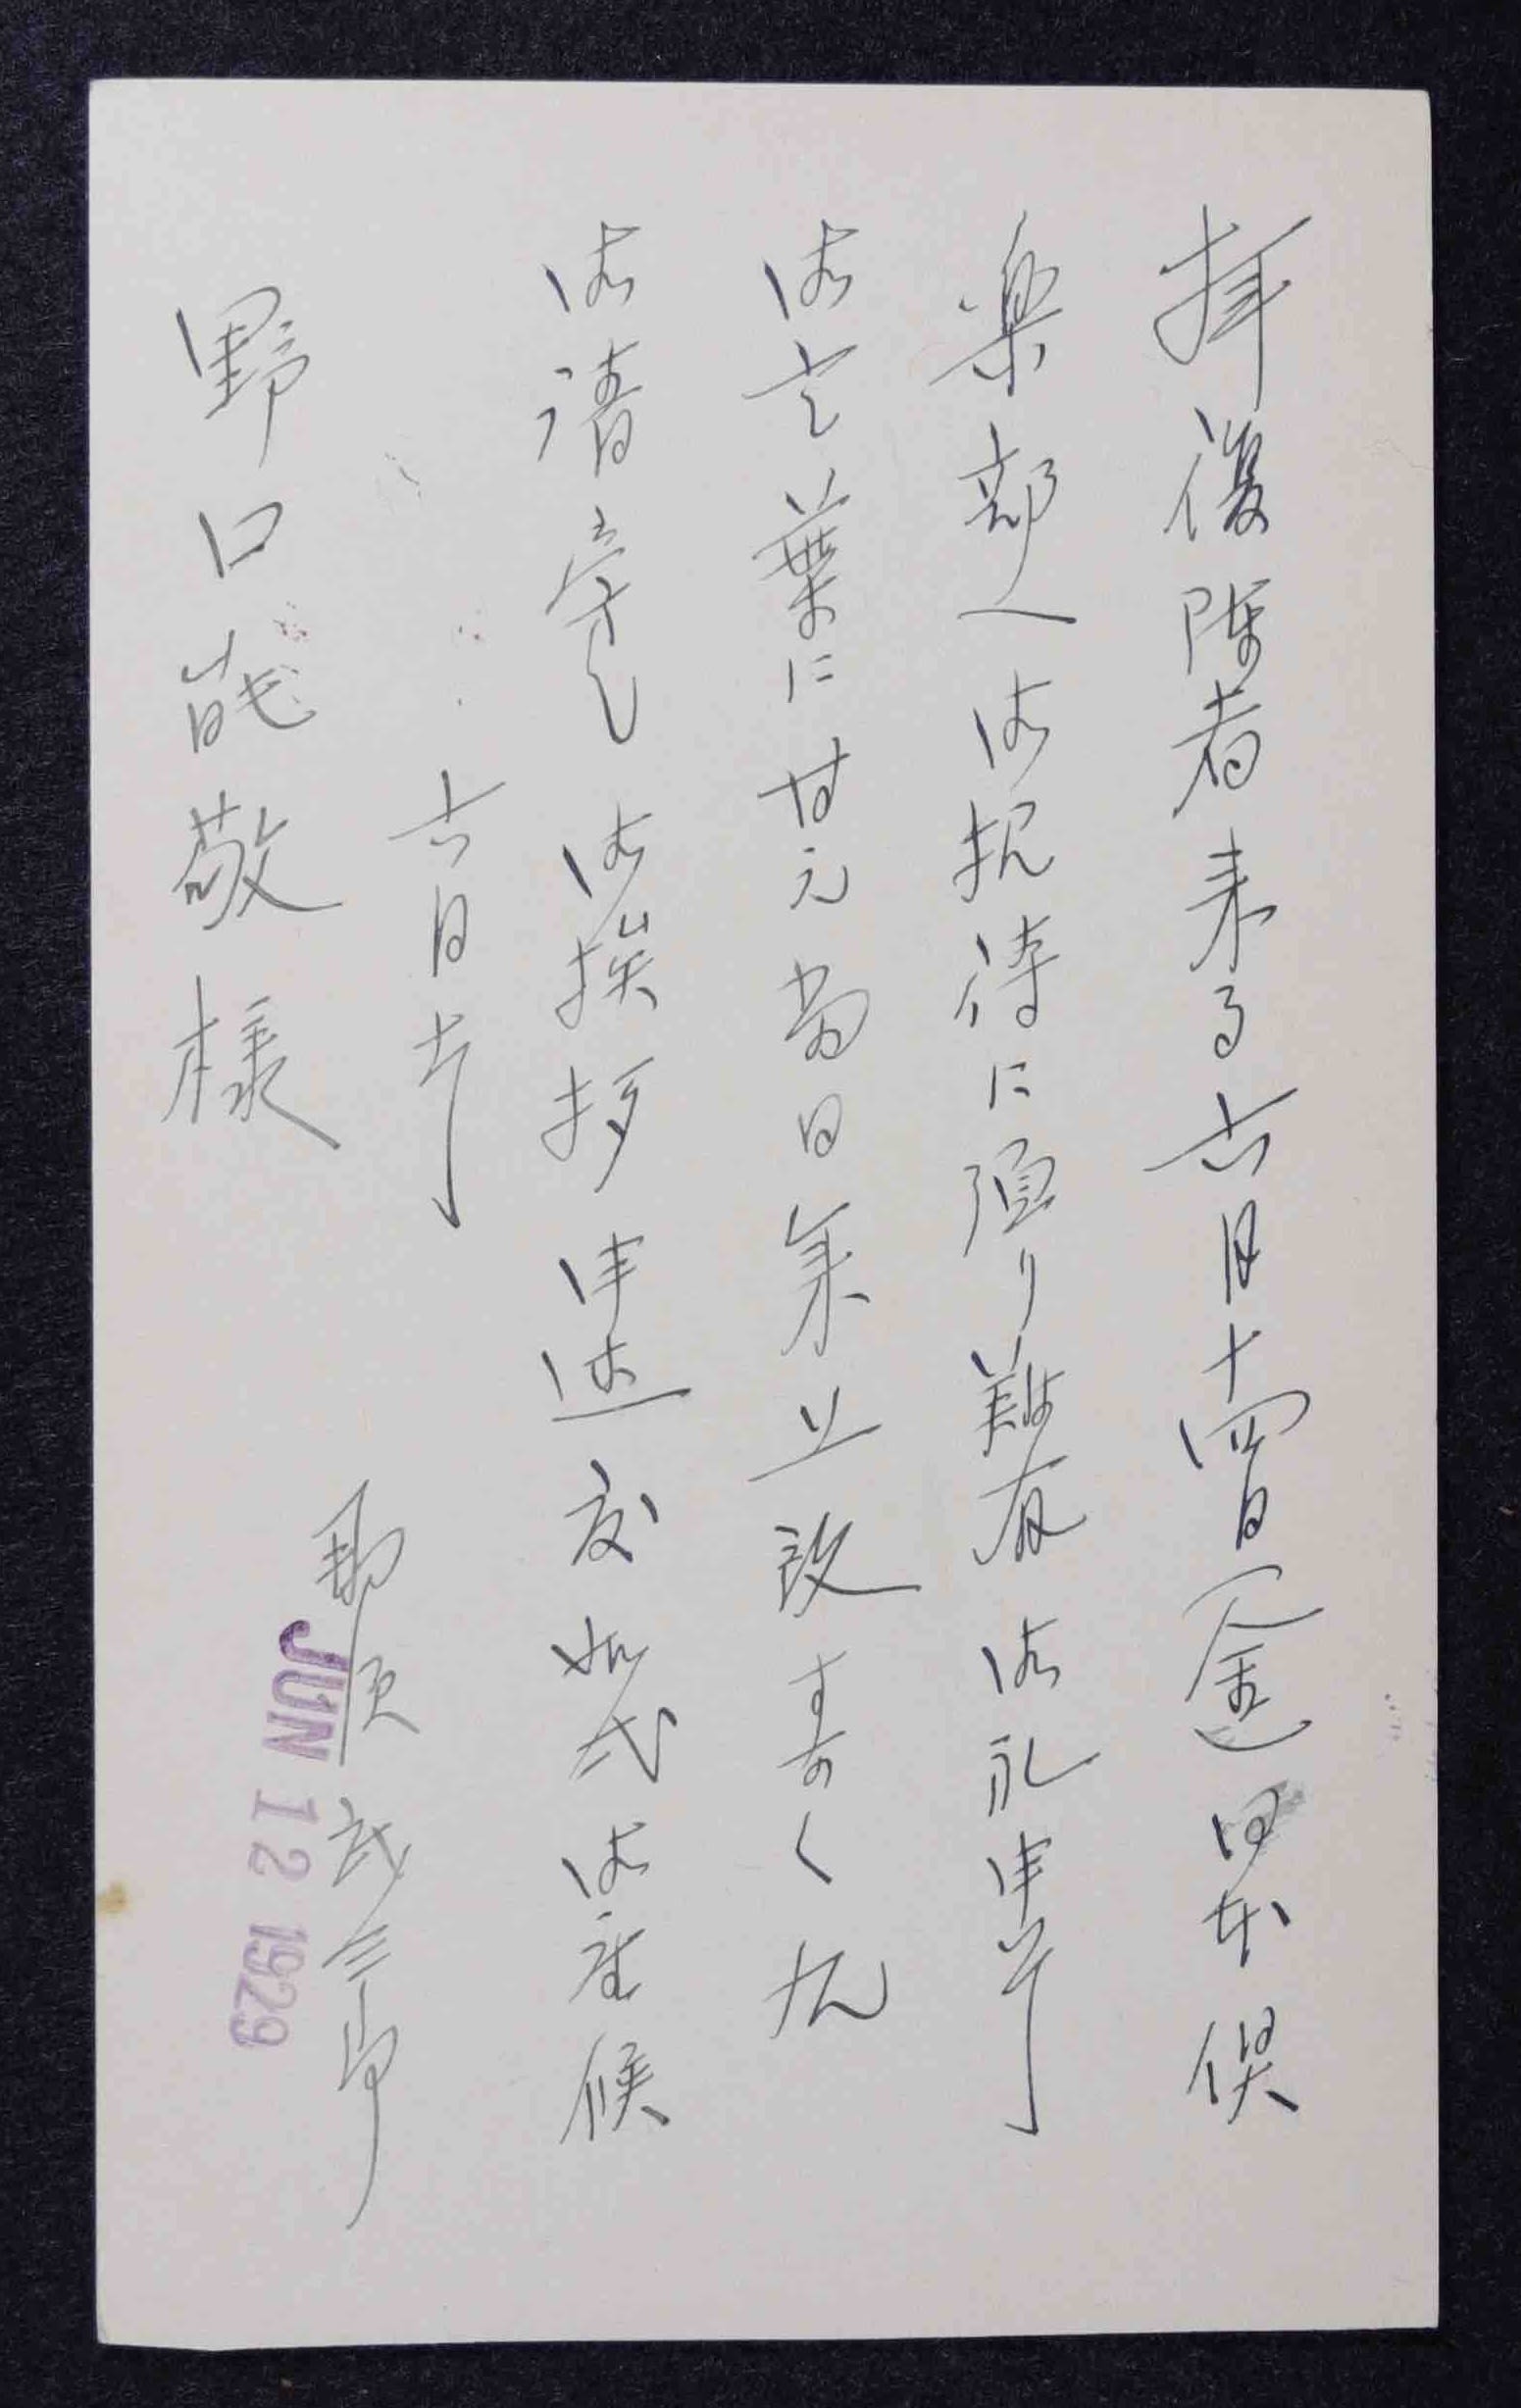 拝復陳者来る六月十四日(金)日本倶
楽部へ御招待に預り難有御礼申上
御言葉に甘え当日参上致すべく先
御請旁々御挨拶申述度如此御座候
六月十
野口能敬様
三郎
JUN 12 1929